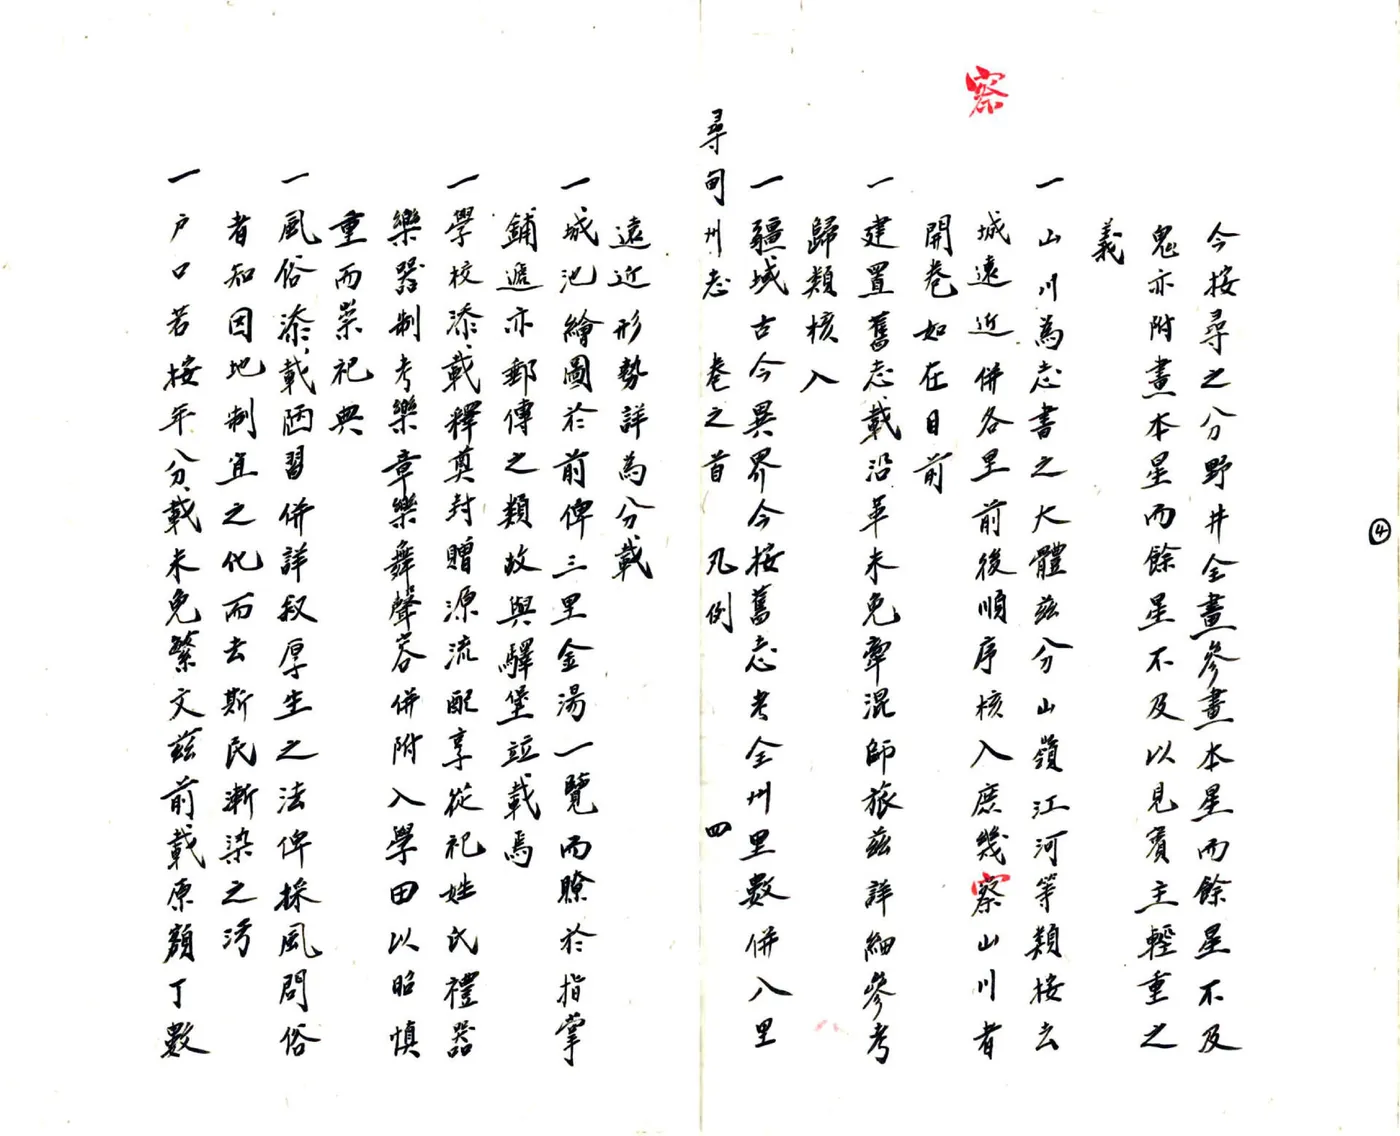 ④
今按尋之分野井全畫參畫本星而餘星不及
鬼亦附畫本星而餘星不及以見賓主輕重之
義
一山川為志書之大體茲分山嶺江河等類按去
城遠近併各里前後順序核入庶幾察山川者
察
開卷如在目前
一建置舊志載沿革未免牽混師旅茲詳細參考
歸類核入
一疆域古今異界今按舊志考全州里數併八里
尋甸州志 卷之首 凡例 四
遠近形勢詳為分載
一城池繪圖於前俾三里金湯一覽而瞭於指掌
鋪遞亦郵傳之類故與驛堡並載焉
一學校添載釋奠封贈源流配享從祀姓氏禮器
樂器制考樂章樂舞聲容併附入學田以昭慎
重而崇祀典
一風俗添載陋習併詳叙厚生之法俾採風問俗
者知因地制宜之化而去斯民漸染之污
一戶口若按年分載未免繁文茲前載原額丁數